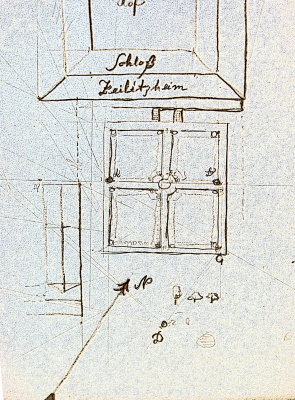 Hof
Schloß
Zeilitzheim
N
G
D